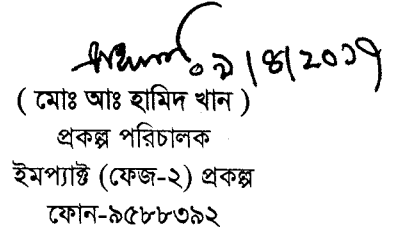 ০৯/৪/২০১৭
( মোঃ আঃ হামিদ খান )
প্রকল্প পরিচালক
ইমপ্যাক্ট (ফেজ-২) প্রকল্প
ফোন-৯৫৮৮৩৯২